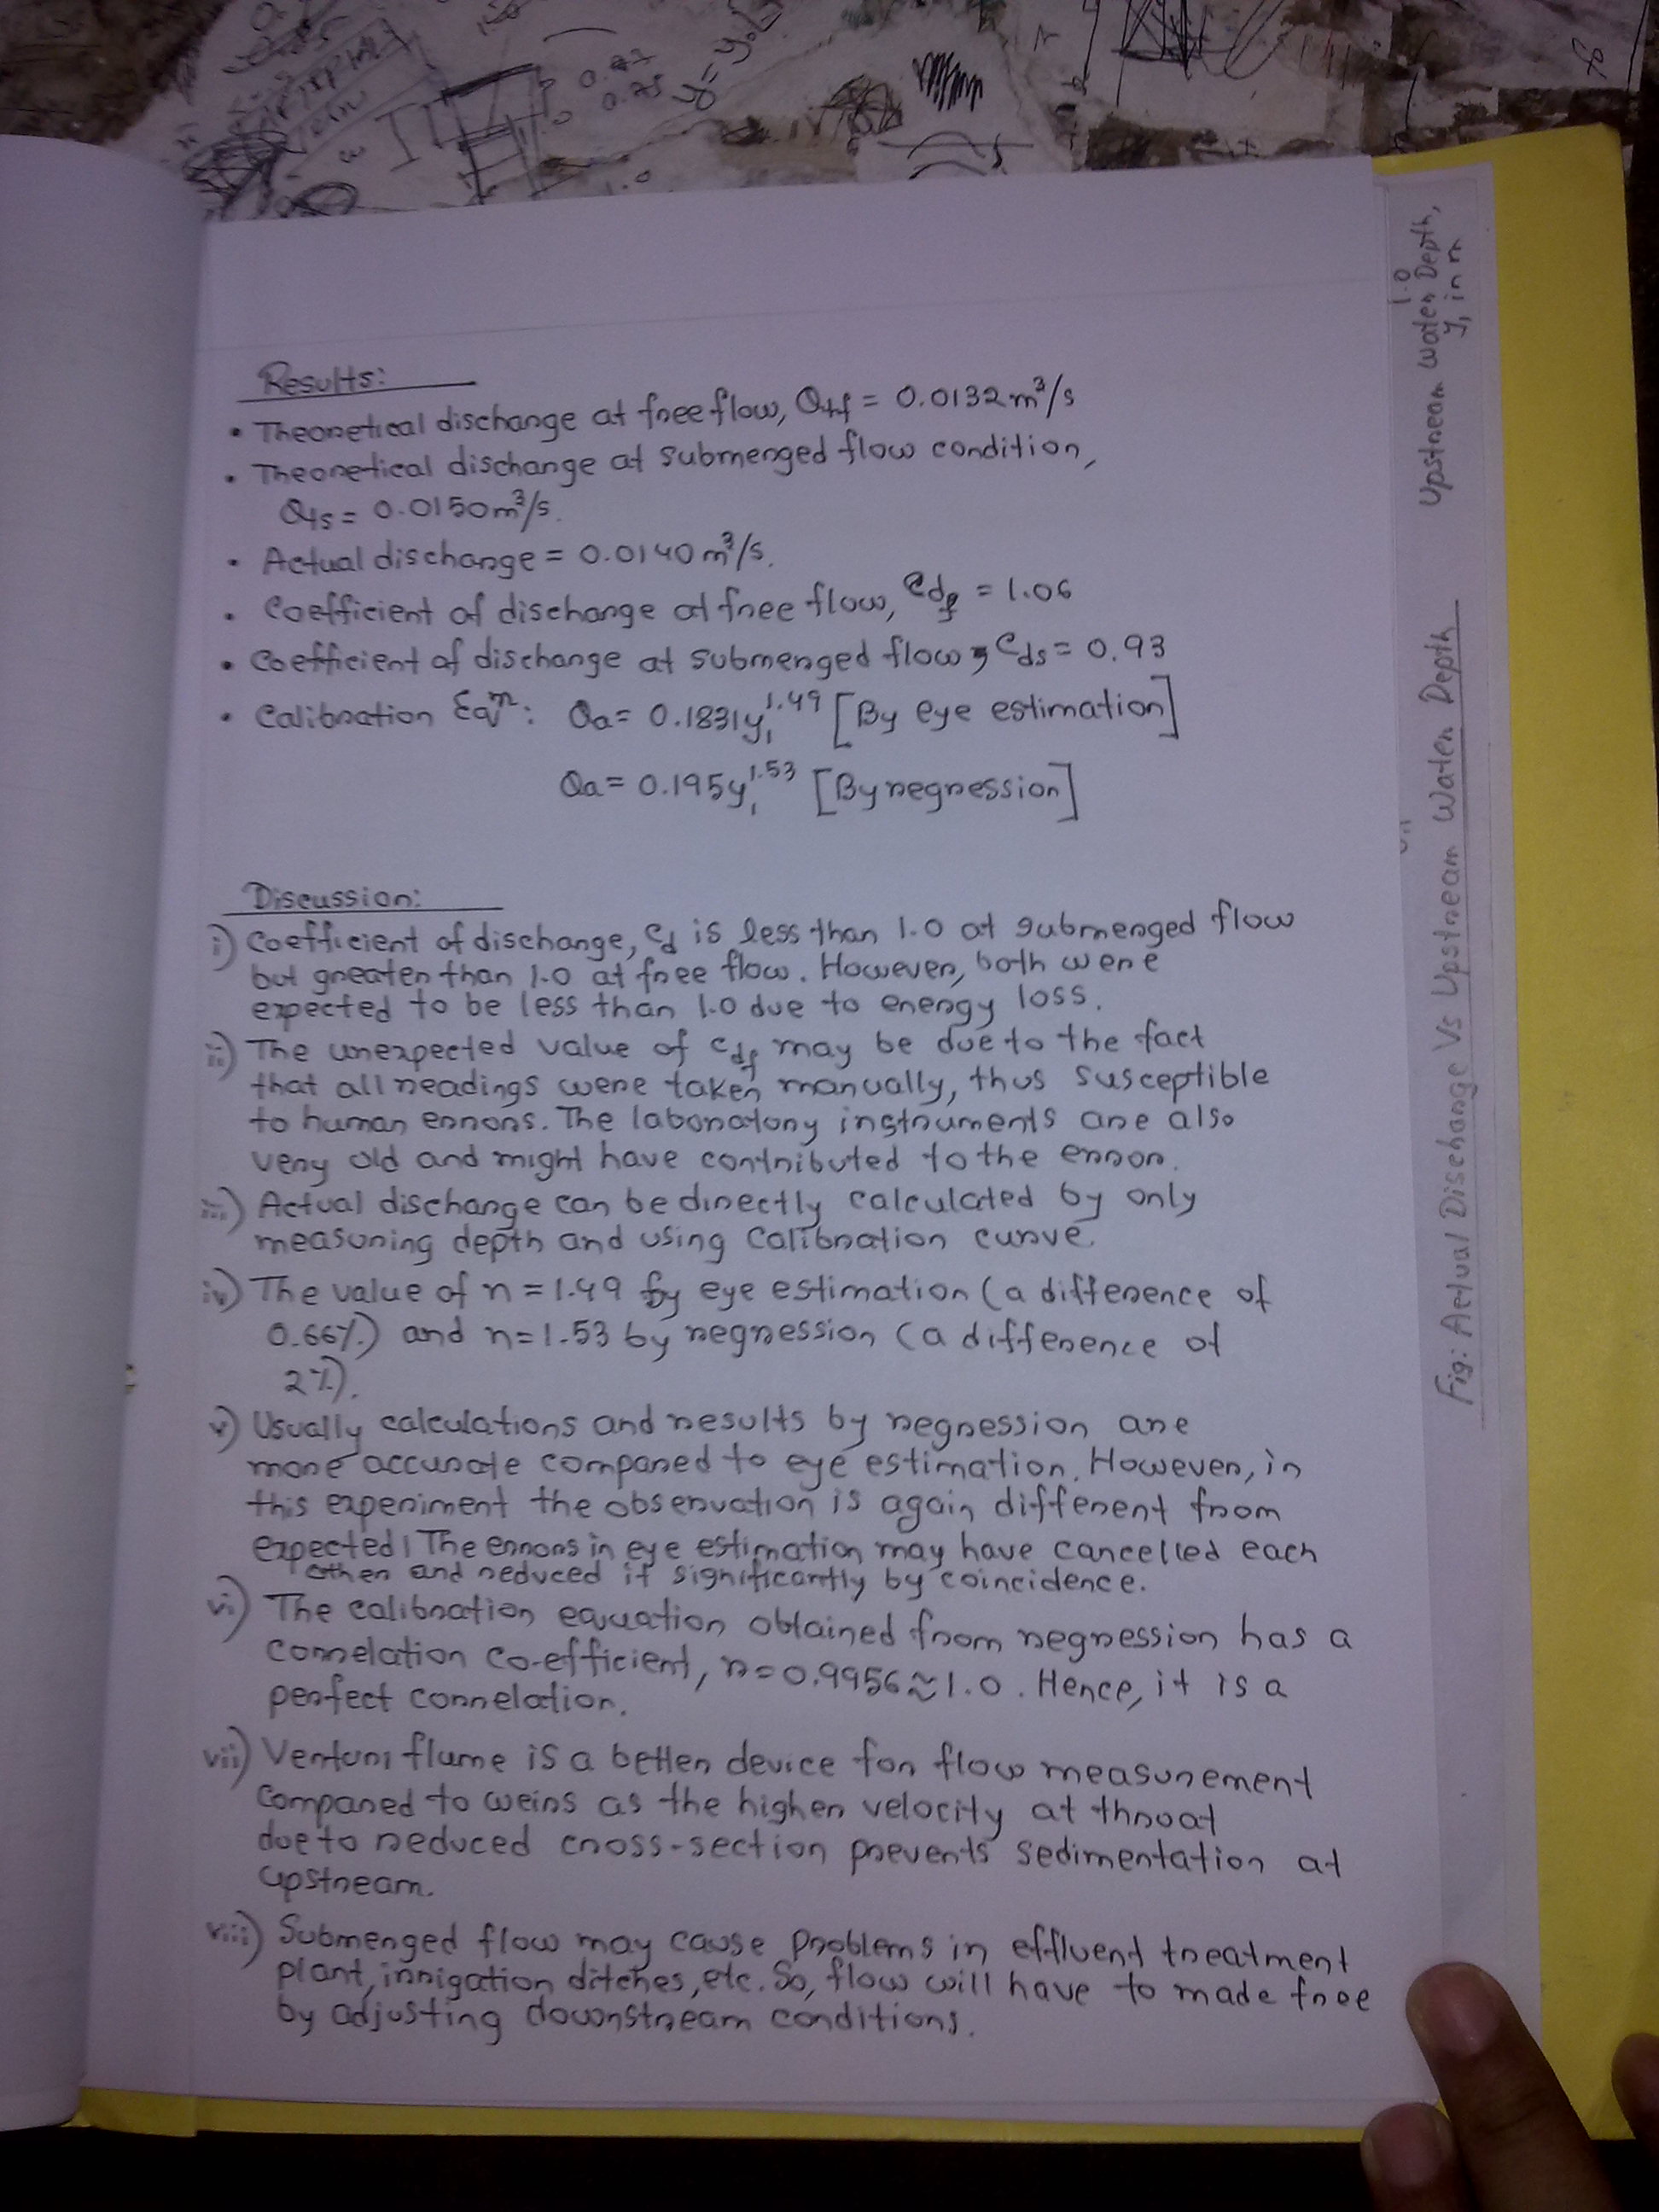 Results:
• Theoretical discharge at free flow, Qtf = 0.0132 m³/s
• Theoretical discharge at submerged flow condition,
Qts = 0.0150 m³/s.
• Actual discharge = 0.0140 m³/s.
• Coefficient of discharge at free flow, Cdf = 1.06
• Coefficient of discharge at submerged flow, Cds = 0.93
• Calibration Eqⁿ: Qa = 0.1831y₁^1.49 [By eye estimation]
Qa = 0.195y₁^1.53 [By regression]
Discussion:
i) Coefficient of discharge, Cd is less than 1.0 at submerged flow
but greater than 1.0 at free flow. However, both were
expected to be less than 1.0 due to energy loss.
ii) The unexpected value of Cdf may be due to the fact
that all readings were taken manually, thus susceptible
to human errors. The laboratory instruments are also
very old and might have contributed to the error.
iii) Actual discharge can be directly calculated by only
measuring depth and using calibration curve.
iv) The value of n = 1.49 by eye estimation (a difference of
0.66%) and n = 1.53 by regression (a difference of
2%).
v) Usually calculations and results by regression are
more accurate compared to eye estimation. However, in
this experiment the observation is again different from
expected! The errors in eye estimation may have cancelled each
other and reduced it significantly by coincidence.
vi) The calibration equation obtained from regression has a
correlation co-efficient, r = 0.9956 ≈ 1.0. Hence, it is a
perfect correlation.
vii) Venturi flume is a better device for flow measurement
compared to weirs as the higher velocity at throat
due to reduced cross-section prevents sedimentation at
upstream.
viii) Submerged flow may cause problems in effluent treatment
plant, irrigation ditches, etc. So, flow will have to made free
by adjusting downstream conditions.
1.0
Upstream Water Depth,
y₁ in m
Fig: Actual Discharge Vs Upstream Water Depth